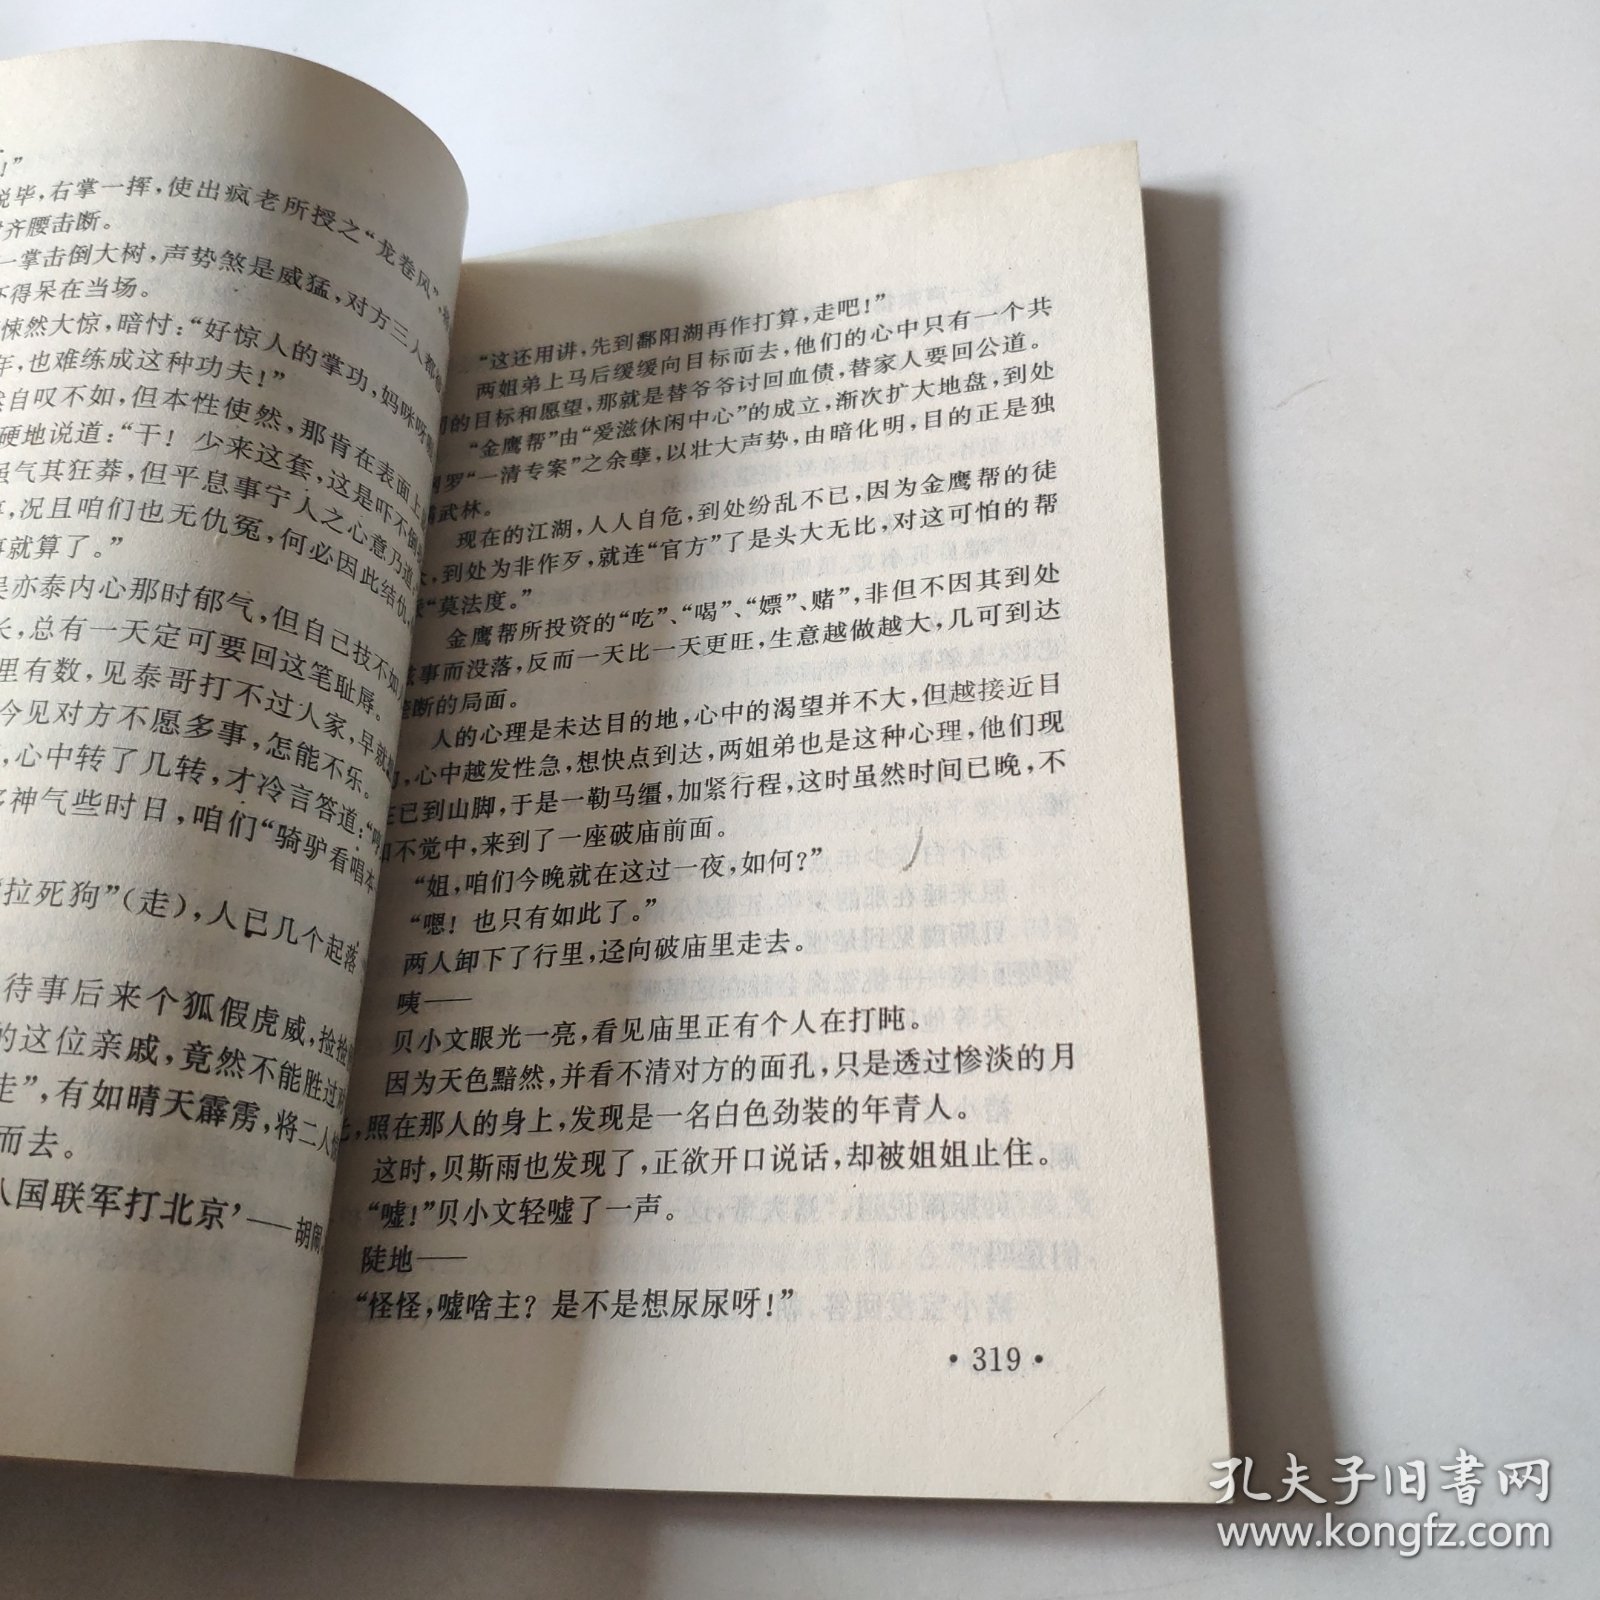 ！”
说毕，右掌一挥，使出疯老所授之“龙卷风”，
齐腰击断。
一掌击倒大树，声势煞是威猛，对方三人都
得呆在当场。
悚然大惊，暗忖：“好惊人的掌功，妈咪呀
年，也难练成这种功夫！”
自叹不如，但本性使然，那肯在表面上
硬地说道：“干！少来这套，这是吓不倒
强气其狂莽，但平息事宁人之心意乃道
，况且咱们也无仇冤，何必因此结仇，
事就算了。”
吴亦泰内心那时郁气，但自己技不如
长，总有一天定可要回这笔耻辱。
里有数，见泰哥打不过人家，早就
今见对方不愿多事，怎能不乐。
，心中转了几转，才冷言答道：“
多神气些时日，咱们“骑驴看唱本
“拉死狗”（走），人已几个起落
待事后来个狐假虎威，捡捡
的这位亲戚，竟然不能胜过
走”，有如晴天霹雳，将二人
而去。
八国联军打北京’——胡闹
“这还用讲，先到鄱阳湖再作打算，走吧！”
两姐弟上马后缓缓向目标而去，他们的心中只有一个共
的目标和愿望，那就是替爷爷讨回血债，替家人要回公道。
“金鹰帮”由“爱滋休闲中心”的成立，渐次扩大地盘，到处
网罗“一清专案”之余孽，以壮大声势，由暗化明，目的正是独
霸武林。
现在的江湖，人人自危，到处纷乱不已，因为金鹰帮的徒
，到处为非作歹，就连“官方”了是头大无比，对这可怕的帮
“莫法度。”
金鹰帮所投资的“吃”、“喝”、“嫖”、赌”，非但不因其到处
滋事而没落，反而一天比一天更旺，生意越做越大，几可到达
垄断的局面。
人的心理是未达目的地，心中的渴望并不大，但越接近目
，心中越发性急，想快点到达，两姐弟也是这种心理，他们现
在已到山脚，于是一勒马缰，加紧行程，这时虽然时间已晚，不
知不觉中，来到了一座破庙前面。
“姐，咱们今晚就在这过一夜，如何？”
“嗯！也只有如此了。”
两人卸下了行里，迳向破庙里走去。
咦——
贝小文眼光一亮，看见庙里正有个人在打盹。
因为天色黯然，并看不清对方的面孔，只是透过惨淡的月
光，照在那人的身上，发现是一名白色劲装的年青人。
这时，贝斯雨也发现了，正欲开口说话，却被姐姐止住。
“嘘！”贝小文轻嘘了一声。
陡地——
“怪怪，嘘啥主？是不是想尿尿呀！”
·319·
孔夫子旧书网
www.kongfz.com